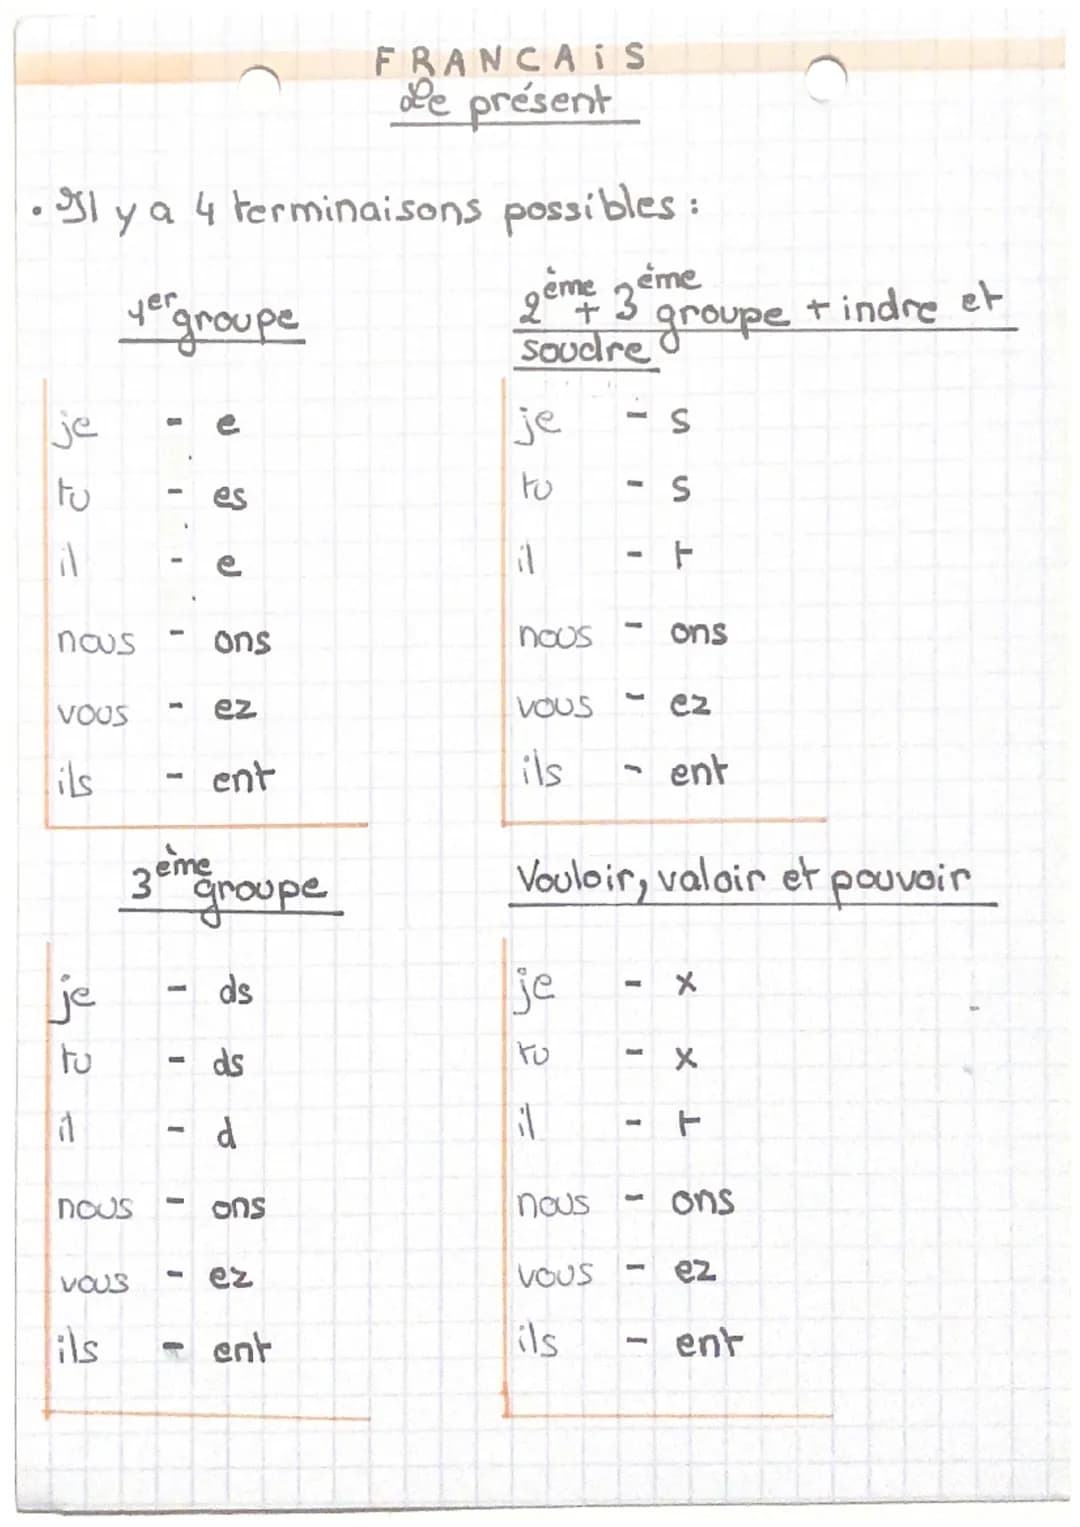 FRANCAiS
Le présent
• Il y a 4 terminaisons possibles :
1er groupe
je - e
tu - es
il - e
nous - ons
vous - ez
ils - ent
2ème + 3ème groupe + indre et
soudre
je - s
tu - s
il - t
nous - ons
vous - ez
ils - ent
3ème groupe
je - ds
tu - ds
il - d
nous - ons
vous - ez
ils - ent
Vouloir, valoir et pouvoir
je - x
tu - x
il - t
nous - ons
vous - ez
ils - ent